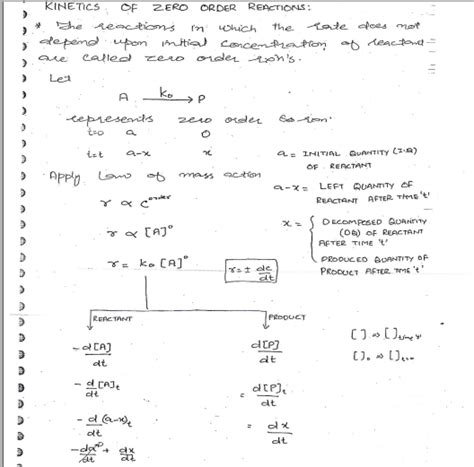 KINETICS OF ZERO ORDER REACTIONS:
* The reactions in which the rate does not
depend upon initial concentration of reactant
are called zero order rxn's.
Let
A k₀→ P
represents zero order rxn.
t=0 a 0
t=t a-x x
a = INITIAL QUANTITY (I.Q)
OF REACTANT
Apply Law of mass action
a-x = LEFT QUANTITY OF
REACTANT AFTER TIME 't'
r ∝ C^order
r ∝ [A]⁰
x = { DECOMPOSED QUANTITY
(DQ) OF REACTANT
AFTER TIME 't'
PRODUCED QUANTITY OF
PRODUCT AFTER TIME 't'
r = k₀ [A]⁰
r = ± dc/dt
REACTANT PRODUCT
-d[A]/dt d[P]/dt
[ ] ⇒ [ ]
[ ]₀ ⇒ [ ]
-d/dt [A]t = d[P]t/dt
-d(a-x)t/dt = dx/dt
-da⁰/dt + dx/dt